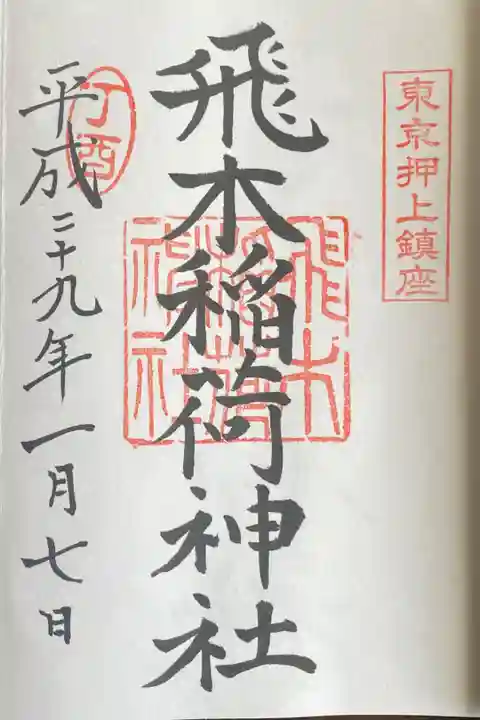 東京押上鎮座
飛木稲荷神社
飛木
稲荷
神社
丁酉
平成二十九年一月七日